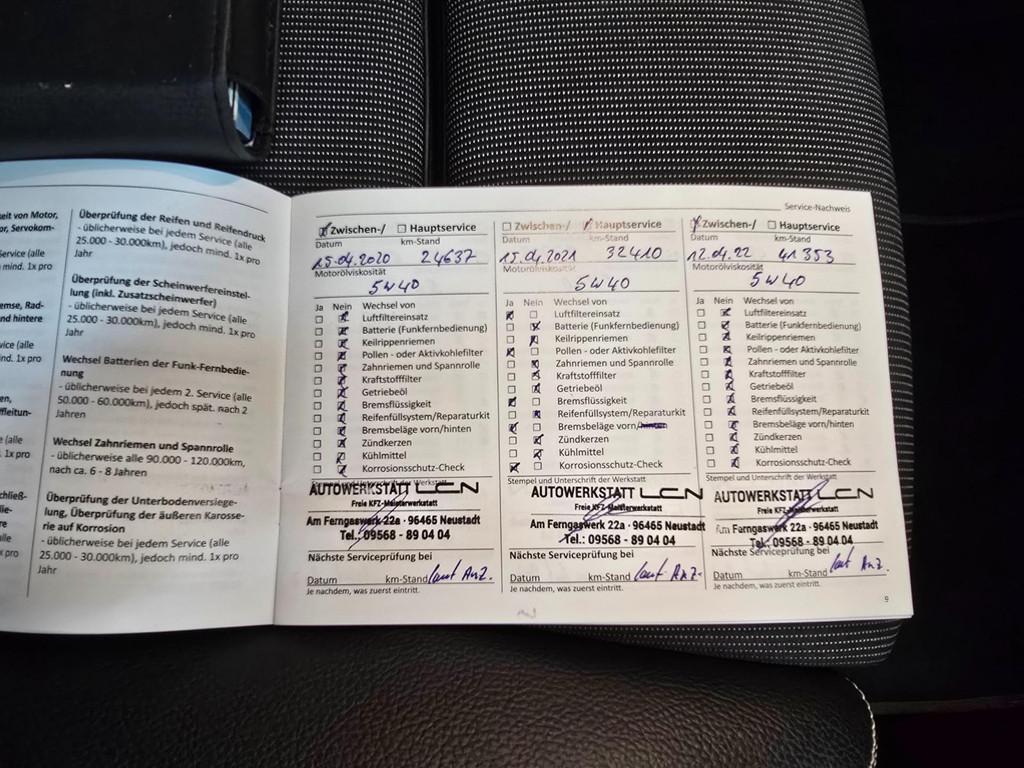 eit von Motor,
or, Servokom-
Service (alle
mind. 1x pro
emse, Rad-
nd hintere
vice (alle
nd. 1x pro
en,
ffleitun-
e (alle
. 1x pro
chließ-
lle
x pro
Überprüfung der Reifen und Reifendruck
- üblicherweise bei jedem Service (alle
25.000 - 30.000km), jedoch mind. 1x pro
Jahr
Überprüfung der Scheinwerfereinstel-
lung (inkl. Zusatzscheinwerfer)
- üblicherweise bei jedem Service (alle
25.000 - 30.000km), jedoch mind. 1x pro
Jahr
Wechsel Batterien der Funk-Fernbedie-
nung
- üblicherweise bei jedem 2. Service (alle
50.000 - 60.000km), jedoch spät. nach 2
Jahren
Wechsel Zahnriemen und Spannrolle
- üblicherweise alle 90.000 - 120.000km,
nach ca. 6 - 8 Jahren
Überprüfung der Unterbodenversiege-
lung, Überprüfung der äußeren Karosse-
rie auf Korrosion
- üblicherweise bei jedem Service (alle
25.000 - 30.000km), jedoch mind. 1x pro
Jahr
Service-Nachweis
Zwischen-/ Hauptservice
Datum km-Stand
15.04.2020 24637
Motorölviskosität
5W40
Ja Nein Wechsel von
Luftfiltereinsatz
Batterie (Funkfernbedienung)
Keilrippenriemen
Pollen - oder Aktivkohlefilter
Zahnriemen und Spannrolle
Kraftstofffilter
Getriebeöl
Bremsflüssigkeit
Reifenfüllsystem/Reparaturkit
Bremsbeläge vorn/hinten
Zündkerzen
Kühlmittel
Korrosionsschutz-Check
Stempel und Unterschrift der Werkstatt
AUTOWERKSTATT LCN
Freie KFZ-Meisterwerkstatt
Am Ferngaswerk 22a · 96465 Neustadt
Tel.: 09568 - 89 04 04
Nächste Serviceprüfung bei
Datum km-Stand laut Anz.
Je nachdem, was zuerst eintritt.
Zwischen-/ Hauptservice
Datum km-Stand
15.04.2021 32410
Motorölviskosität
5W40
Ja Nein Wechsel von
Luftfiltereinsatz
Batterie (Funkfernbedienung)
Keilrippenriemen
Pollen - oder Aktivkohlefilter
Zahnriemen und Spannrolle
Kraftstofffilter
Getriebeöl
Bremsflüssigkeit
Reifenfüllsystem/Reparaturkit
Bremsbeläge vorn/hinten
Zündkerzen
Kühlmittel
Korrosionsschutz-Check
Stempel und Unterschrift der Werkstatt
AUTOWERKSTATT LCN
Freie KFZ-Meisterwerkstatt
Am Ferngaswerk 22a · 96465 Neustadt
Tel.: 09568 - 89 04 04
Nächste Serviceprüfung bei
Datum km-Stand laut Anz.
Je nachdem, was zuerst eintritt.
Zwischen-/ Hauptservice
Datum km-Stand
12.04.22 41353
Motorölviskosität
5W40
Ja Nein Wechsel von
Luftfiltereinsatz
Batterie (Funkfernbedienung)
Keilrippenriemen
Pollen - oder Aktivkohlefilter
Zahnriemen und Spannrolle
Kraftstofffilter
Getriebeöl
Bremsflüssigkeit
Reifenfüllsystem/Reparaturkit
Bremsbeläge vorn/hinten
Zündkerzen
Kühlmittel
Korrosionsschutz-Check
Stempel und Unterschrift der Werkstatt
AUTOWERKSTATT LCN
Freie KFZ-Meisterwerkstatt
Am Ferngaswerk 22a · 96465 Neustadt
Tel.: 09568 - 89 04 04
Nächste Serviceprüfung bei
Datum km-Stand laut Anz.
Je nachdem, was zuerst eintritt.
9